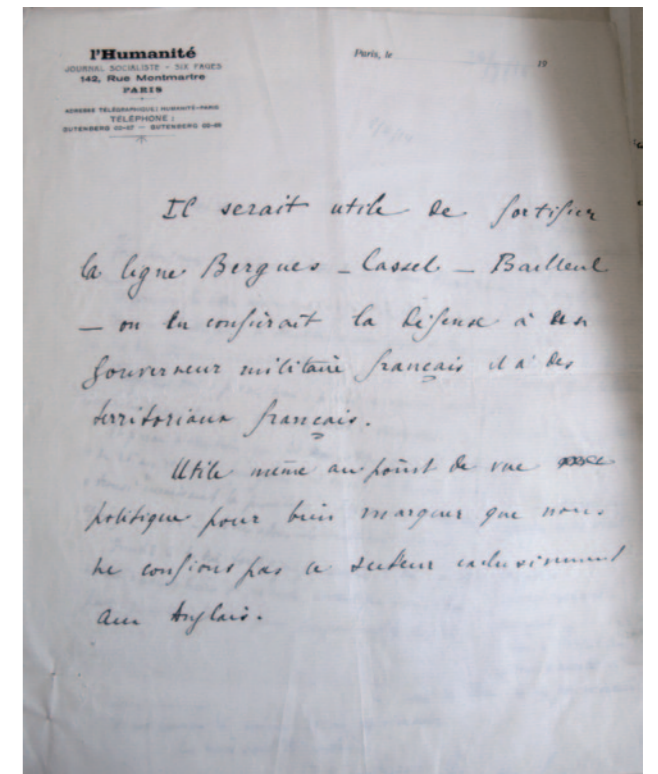 l'Humanité
JOURNAL SOCIALISTE - SIX PAGES
142, Rue Montmartre
PARIS
ADRESSE TÉLÉGRAPHIQUE: HUMANITÉ-PARIS
TÉLÉPHONE :
Paris, le 19
Il serait utile de fortifier
la ligne Bergues - Cassel - Bailleul
- on en confierait la défense à un
Gouverneur militaire français et à des
territoriaux français.
Utile même au point de vue
politique pour bien marquer que nous
ne confions pas ce secteur exclusivement
aux Anglais.